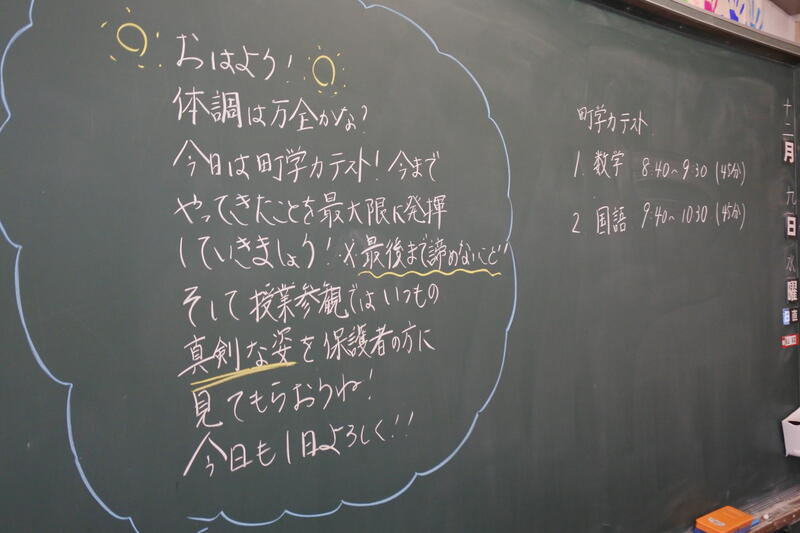 おはよう!
体調は万全かな?
今日は町学力テスト!今まで
やってきたことを最大限に発揮
していきましょう!※最後まで諦めないこと!!
そして授業参観ではいつもの
真剣な姿を保護者の方に
見てもらおうね!
今日も1日よろしく!!
町学力テスト
1. 数学 8:40~9:30 (45分)
2 国語 9:40~10:30 (45分)
十二月
九日
水曜
日直